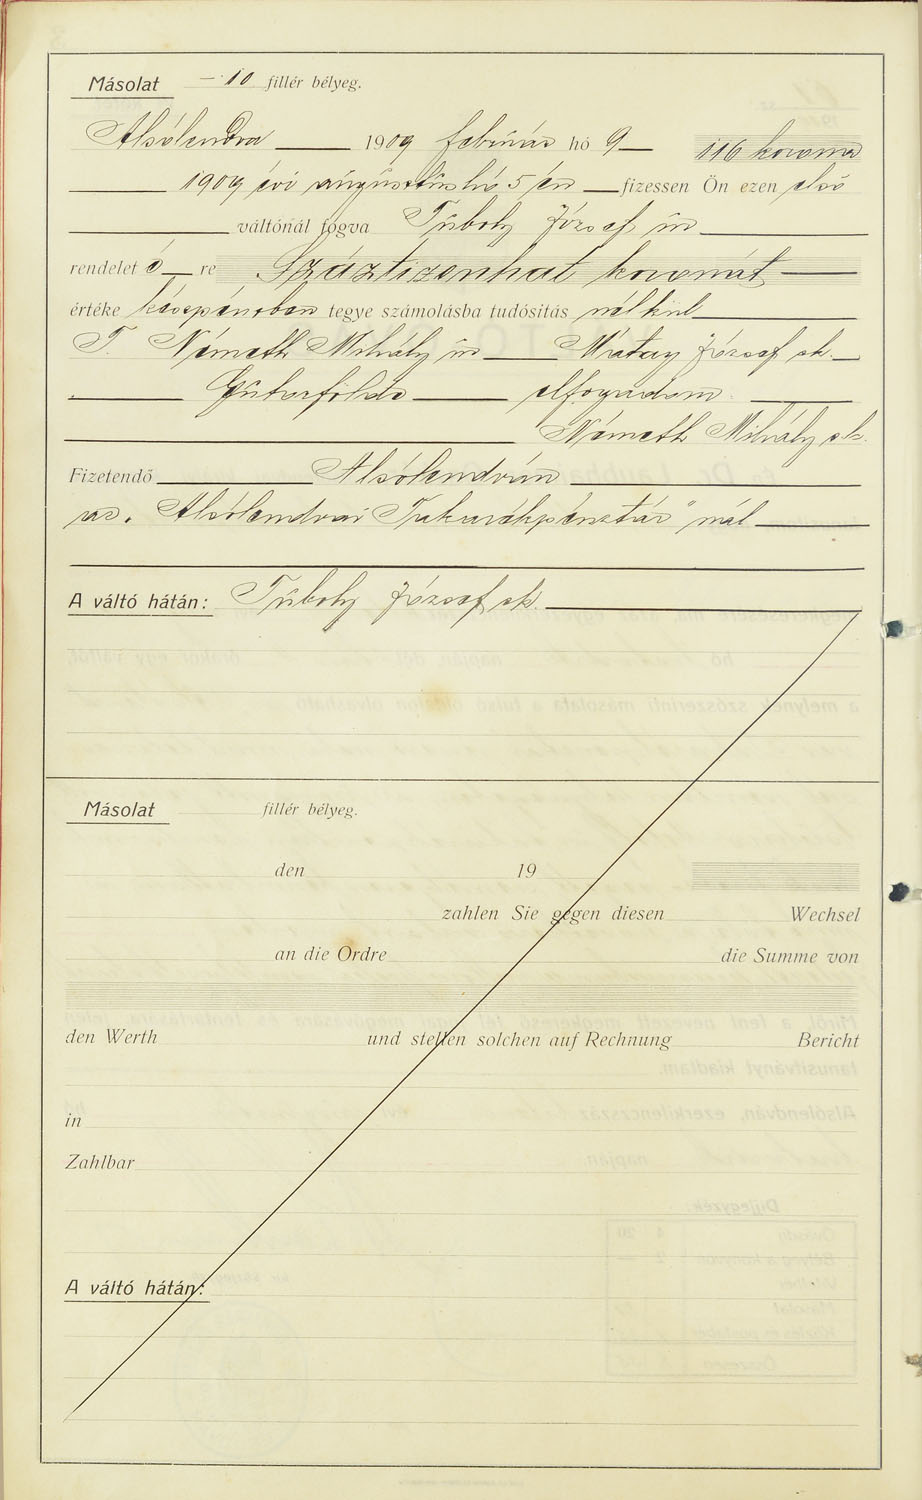 Másolat —·10 fillér bélyeg.
Alsólendva 1909 február hó 9 116 korona
1909 évi augusztus hó 5 én fizessen Ön ezen első
váltónál fogva Tüboly József úr
rendelet é re Száztizenhat koronát
értéke készpénzben tegye számolásba tudósitás nélkül
T. Németh Mihály úr József sk.
elfogadom
Németh Mihály sk.
Fizetendő Alsólendván
az „Alsólendvai Takarékpénztár" nál
A váltó hátán: Tüboly József sk.
Másolat fillér bélyeg.
den 19
zahlen Sie gegen diesen Wechsel
an die Ordre die Summe von
den Werth und stellen solchen auf Rechnung Bericht
in
Zahlbar
A váltó hátán: